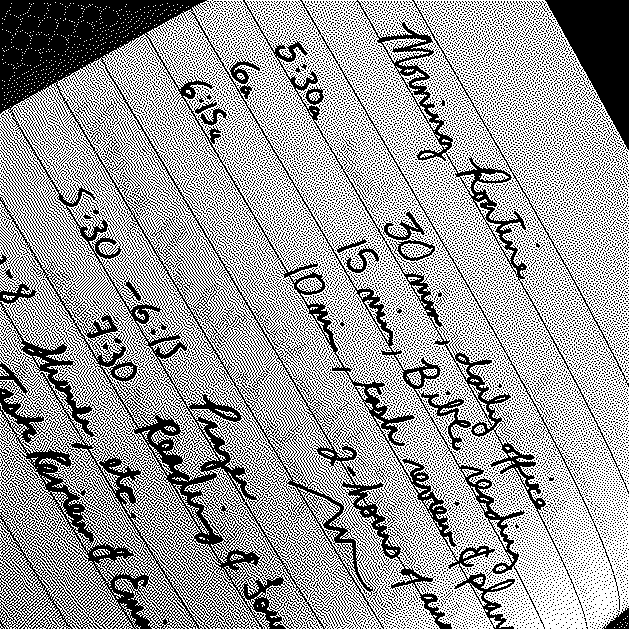 Morning Routine
5:30a 30 min, daily office
6a 15 min, Bible reading
6:15a 10 min, task review & plan
2-hours
5:30 - 6:15 Prayer
7:30 Reading &
-8 Shower, etc.
Task Review &